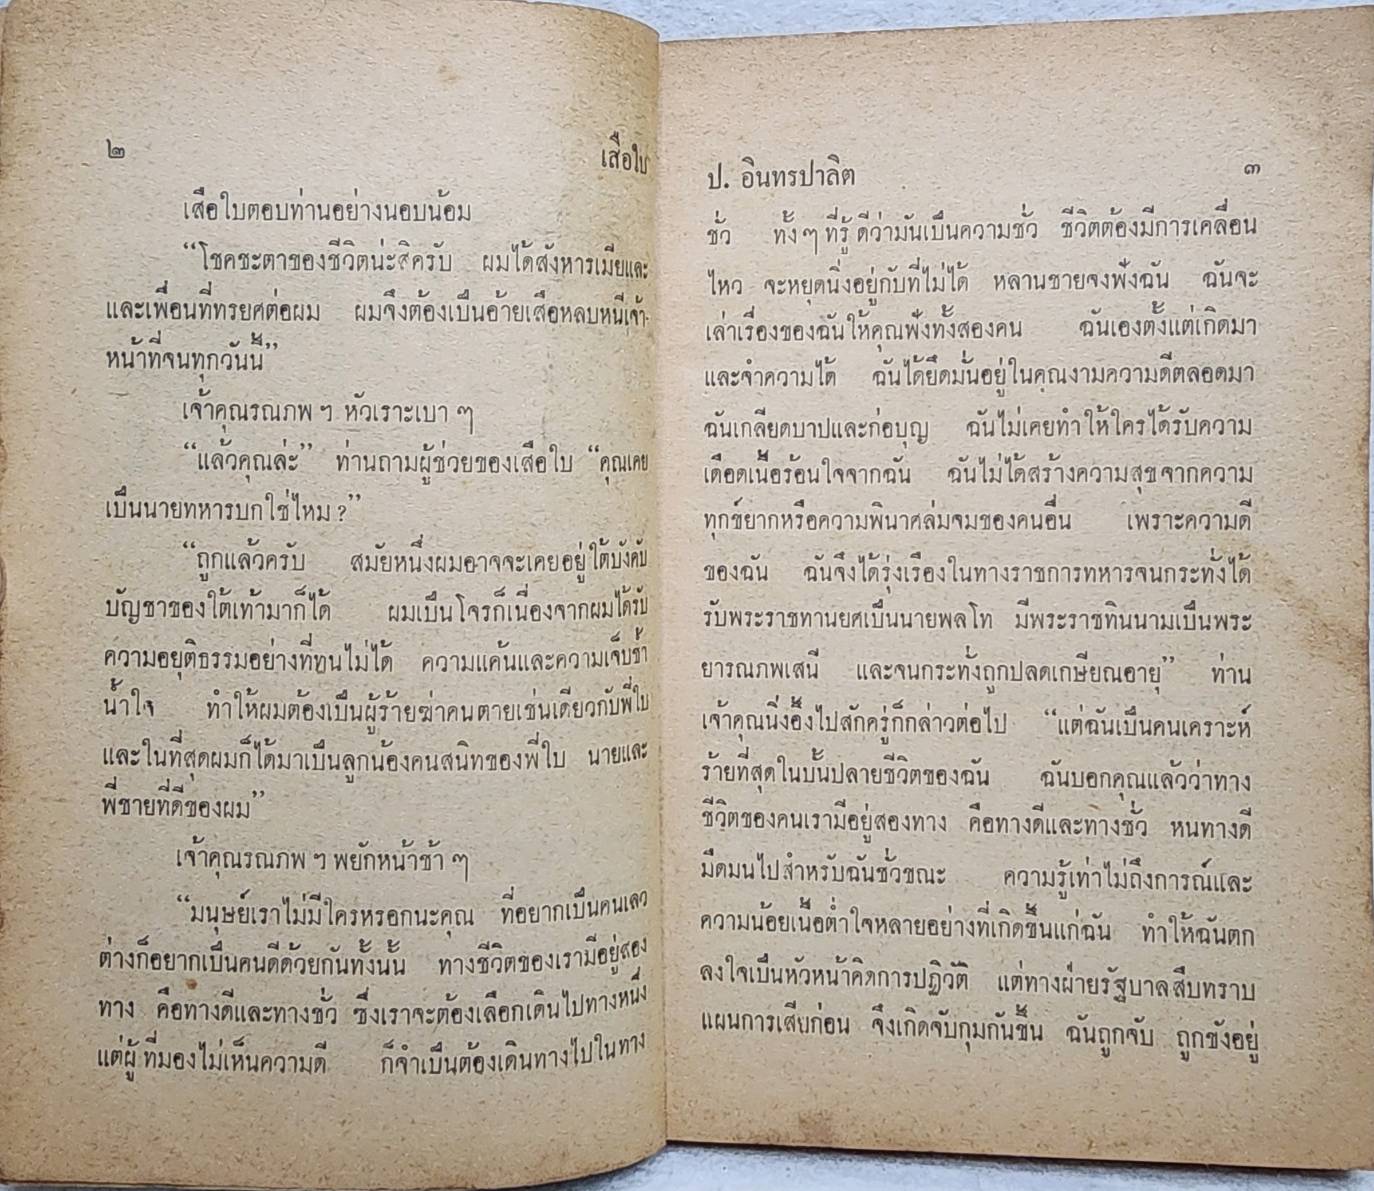 ๒
เสือใบ
เสือใบตอบท่านอย่างนอบน้อม
“โชคชะตาของชีวิตน่ะสิครับ ผมได้สังหารเมียและ
และเพื่อนที่ทรยศต่อผม ผมจึงต้องเป็นอ้ายเสือหลบหนีเจ้า-
หน้าที่จนทุกวันนี้”
เจ้าคุณรณภพ ฯ หัวเราะเบา ๆ
“แล้วคุณล่ะ” ท่านถามผู้ช่วยของเสือใบ “คุณเคย
เป็นนายทหารบกใช่ไหม ?”
“ถูกแล้วครับ สมัยหนึ่งผมอาจจะเคยอยู่ใต้บังคับ
บัญชาของใต้เท้ามาก็ได้ ผมเป็นโจรก็เนื่องจากผมได้รับ
ความอยุติธรรมอย่างที่ทนไม่ได้ ความแค้นและความเจ็บช้ำ
น้ำใจ ทำให้ผมต้องเป็นผู้ร้ายฆ่าคนตายเช่นเดียวกับพี่ใบ
และในที่สุดผมก็ได้มาเป็นลูกน้องคนสนิทของพี่ใบ นายและ
พี่ชายที่ดีของผม”
เจ้าคุณรณภพ ฯ พยักหน้าช้า ๆ
“มนุษย์เราไม่มีใครหรอกนะคุณ ที่อยากเป็นคนเลว
ต่างก็อยากเป็นคนดีด้วยกันทั้งนั้น ทางชีวิตของเรามีอยู่สอง
ทาง คือทางดีและทางชั่ว ซึ่งเราจะต้องเลือกเดินไปทางหนึ่ง
แต่ผู้ที่มองไม่เห็นความดี ก็จำเป็นต้องเดินทางไปในทาง
ป. อินทรปาลิต
๓
ชั่ว ทั้ง ๆ ที่รู้ดีว่ามันเป็นความชั่ว ชีวิตต้องมีการเคลื่อน
ไหว จะหยุดนิ่งอยู่กับที่ไม่ได้ หลานชายจงฟังฉัน ฉันจะ
เล่าเรื่องของฉันให้คุณฟังทั้งสองคน ฉันเองตั้งแต่เกิดมา
และจำความได้ ฉันได้ยึดมั่นอยู่ในคุณงามความดีตลอดมา
ฉันเกลียดบาปและก่อบุญ ฉันไม่เคยทำให้ใครได้รับความ
เดือดเนื้อร้อนใจจากฉัน ฉันไม่ได้สร้างความสุขจากความ
ทุกข์ยากหรือความพินาศล่มจมของคนอื่น เพราะความดี
ของฉัน ฉันจึงได้รุ่งเรืองในทางราชการทหารจนกระทั่งได้
รับพระราชทานยศเป็นนายพลโท มีพระราชทินนามเป็นพระ
ยารณภพเสนี และจนกระทั่งถูกปลดเกษียณอายุ” ท่าน
เจ้าคุณนิ่งอึ้งไปสักครู่ก็กล่าวต่อไป “แต่ฉันเป็นคนเคราะห์
ร้ายที่สุดในบั้นปลายชีวิตของฉัน ฉันบอกคุณแล้วว่าทาง
ชีวิตของคนเรามีอยู่สองทาง คือทางดีและทางชั่ว หนทางดี
มืดมนไปสำหรับฉันชั่วขณะ ความรู้เท่าไม่ถึงการณ์และ
ความน้อยเนื้อต่ำใจหลายอย่างที่เกิดขึ้นแก่ฉัน ทำให้ฉันตก
ลงใจเป็นหัวหน้าคิดการปฏิวัติ แต่ทางฝ่ายรัฐบาลสืบทราบ
แผนการเสียก่อน จึงเกิดจับกุมกันขึ้น ฉันถูกจับ ถูกขังอยู่